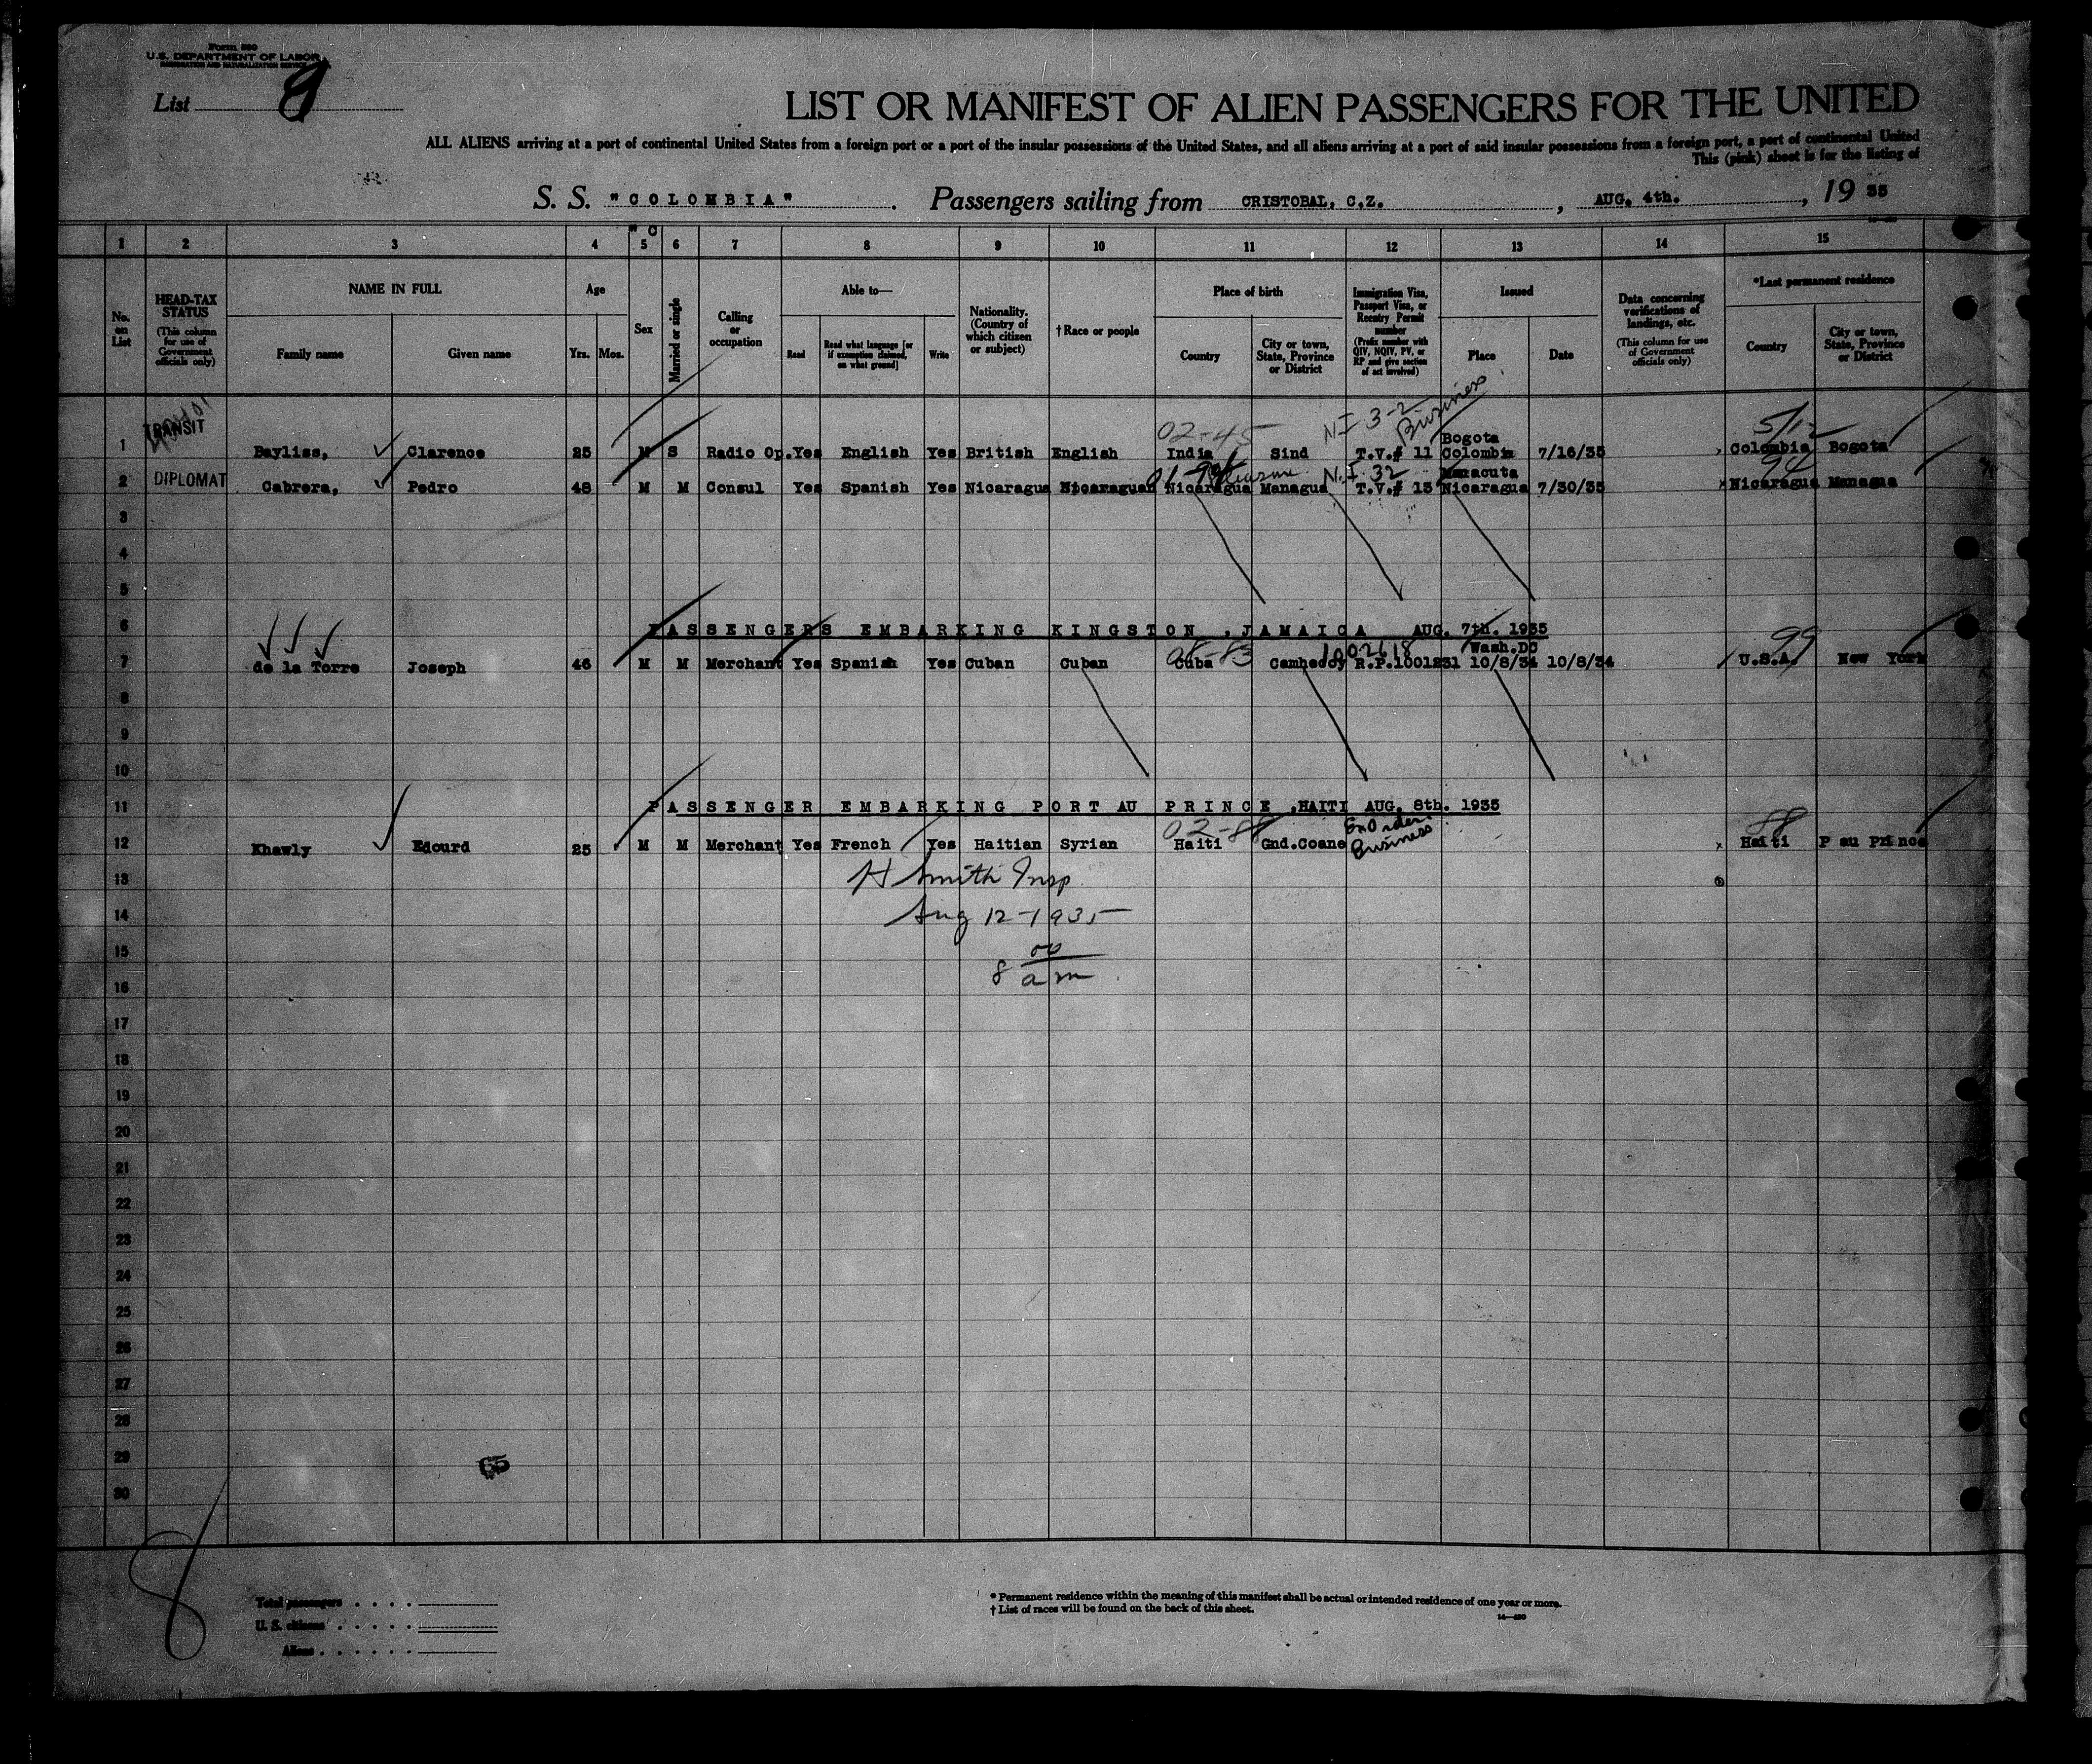 Form 500
U.S. DEPARTMENT OF LABOR
IMMIGRATION AND NATURALIZATION SERVICE
List 8
LIST OR MANIFEST OF ALIEN PASSENGERS FOR THE UNITED
ALL ALIENS arriving at a port of continental United States from a foreign port or a port of the insular possessions of the United States, and all aliens arriving at a port of said insular possessions from a foreign port, a port of continental United
This (pink) sheet is for the listing of
S. S. "COLOMBIA" . Passengers sailing from CRISTOBAL, C.Z. , AUG. 4th. , 19 35
1 2 3 4 5 6 7 8 9 10 11 12 13 14 15
No. on List
HEAD-TAX STATUS (This column for use of Government officials only)
NAME IN FULL
Family name Given name
Age
Yrs. Mos.
Sex
Married or single
Calling or occupation
Able to—
Read Read what language [or if exemption claimed, on what ground] Write
Nationality. (Country of which citizen or subject)
† Race or people
Place of birth
Country City or town, State, Province or District
Immigration Visa, Passport Visa, or Reentry Permit number (Prefix number with QIV, NQIV, PV, or RP and give section of act involved)
Issued
Place Date
Data concerning verifications of landings, etc. (This column for use of Government officials only)
*Last permanent residence
Country City or town, State, Province or District
TRANSIT 02-45 NI 3-2 Business 5/12
1 Bayliss, Clarence 25 M S Radio Op. Yes English Yes British English India Sind T.V.# 11 Bogota Colombia 7/16/35 Colombia Bogota
DIPLOMAT N.I 32 94
2 Cabrera, Pedro 48 M M Consul Yes Spanish Yes Nicaragua Nicaraguan Nicaragua Managua T.V.# 13 Nicaragua 7/30/35 Nicaragua Managua
3
4
5
6 PASSENGERS EMBARKING KINGSTON , JAMAICA AUG. 7th. 1935
08-83 1002618 Wash.DC 99
7 de la Torre Joseph 46 M M Merchant Yes Spanish Yes Cuban Cuban Cuba R.P.1001231 10/8/34 10/8/34 U.S.A. New York
8
9
10
11 PASSENGER EMBARKING PORT AU PRINCE ,HAITI AUG. 8th. 1935
02-88 Business 88
12 Khawly Edourd 25 M M Merchant Yes French Yes Haitian Syrian Haiti Gnd.Coane Haiti P au Prince
13 H Smith Insp.
14 Aug 12-1935
15
16 8 00 am
17
18
19
20
21
22
23
24
25
26
27
28
29
30
65
8
Total passengers
U. S. citizens
Aliens
* Permanent residence within the meaning of this manifest shall be actual or intended residence of one year or more.
† List of races will be found on the back of this sheet.